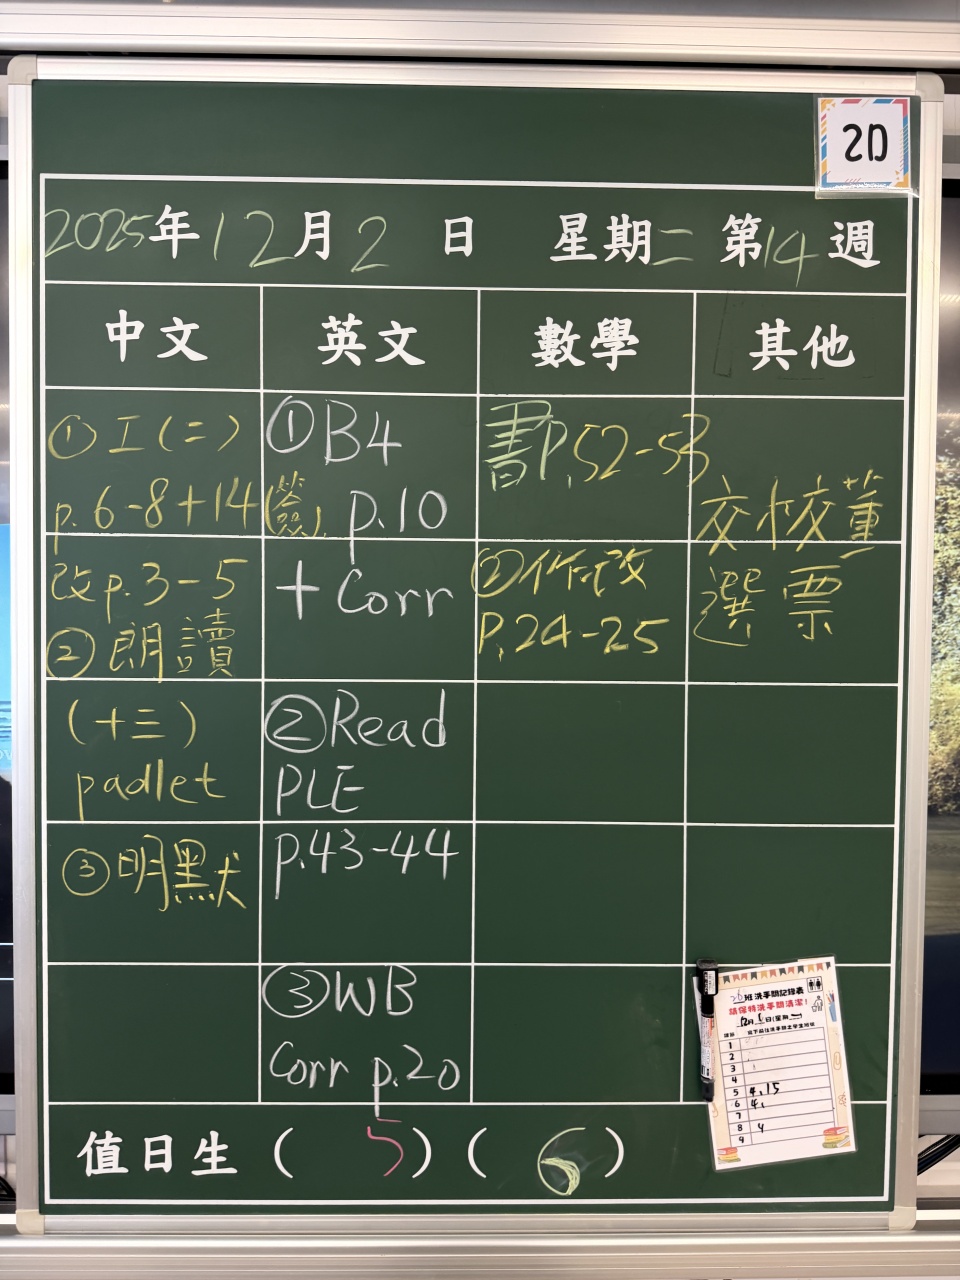 2D
2025年12月2日 星期二 第14週
中文 英文 數學 其他
①工(二)
p.6-8+14(簽)
改p.3-5
②朗讀
(十三)
padlet
③明默
①B4
p.10
+Corr
②Read
PLE
p.43-44
③WB
Corr p.20
書P.52-53
②作改
P.24-25
交校董
選票
2D班洗手間記錄表
請保持洗手間清潔!
1
2
3
4
5 4,15
6 4,
7
8 4
9
值日生(5)(6)